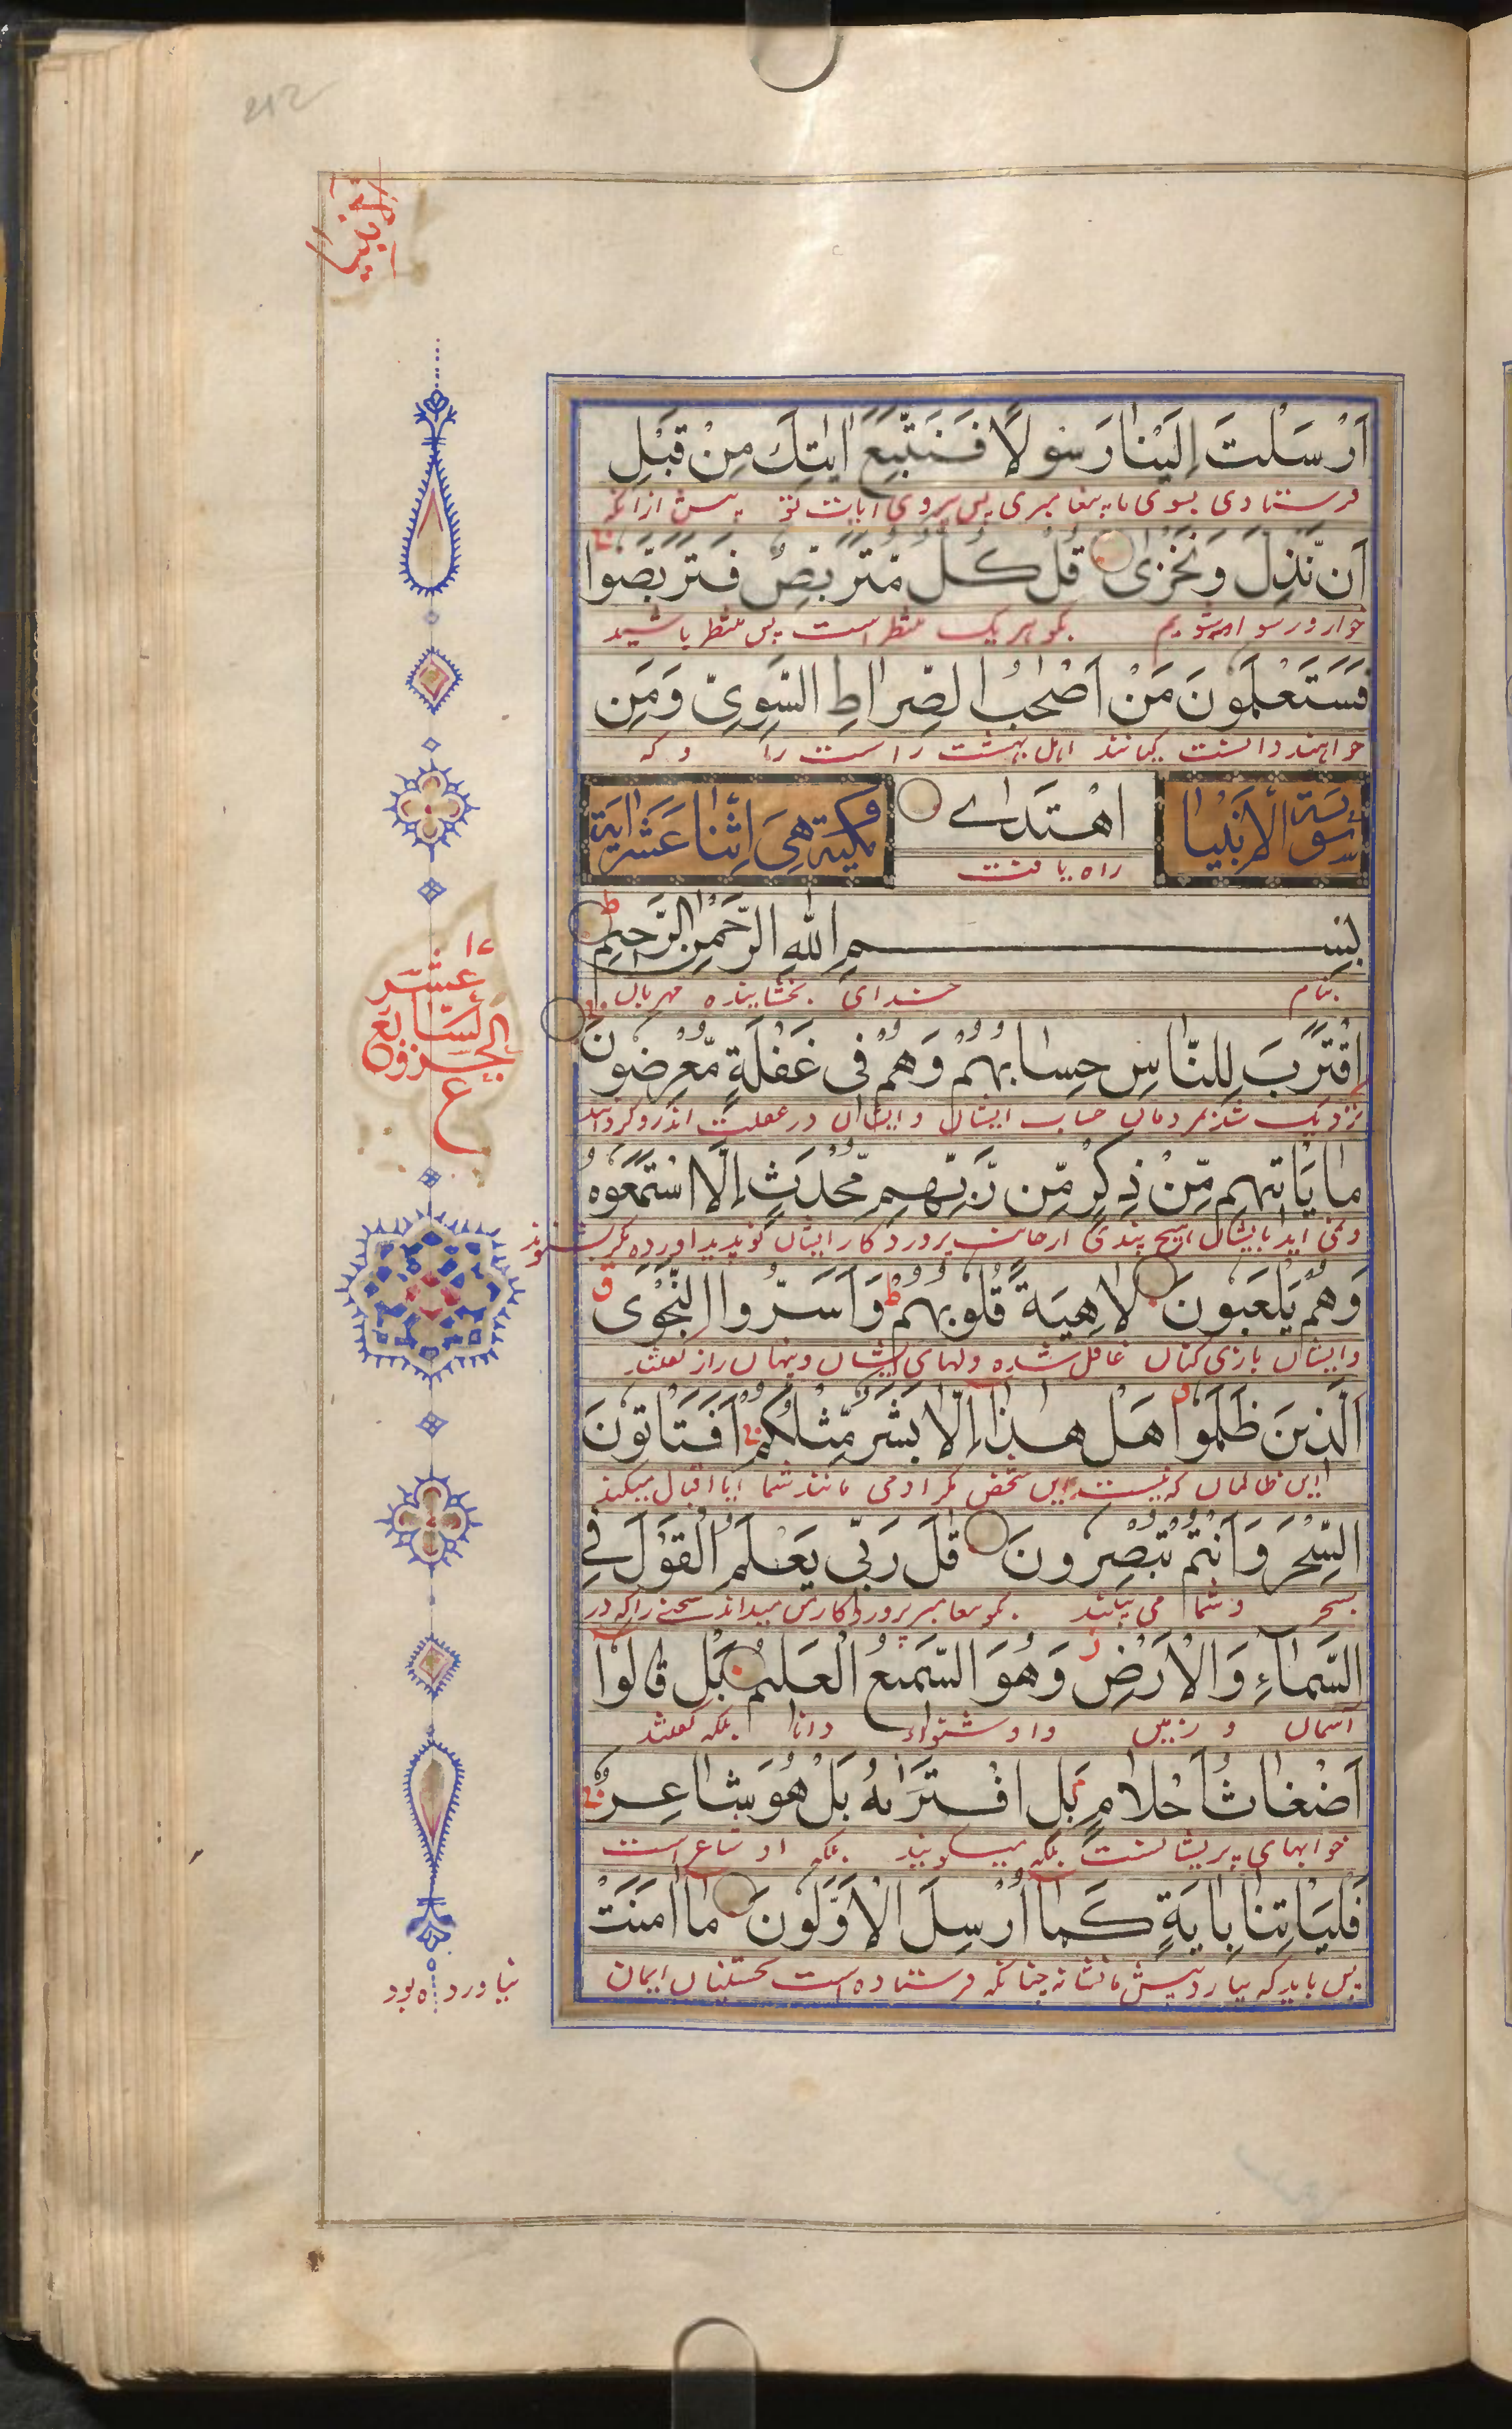 212
الأنبيا
أَرْسَلْتَ إِلَيْنَا رَسُولًا فَنَتَّبِعَ اٰيٰتِكَ مِنْ قَبْلِ
فرستادی بسوی ما پیغامبری پس پیروی ایات تو پیش ازانکه
أَنْ نَّذِلَّ وَنَخْزٰى قُلْ كُلٌّ مُّتَرَبِّصٌ فَتَرَبَّصُوا
خوار و رسوا شویم بگو هریک منتظر است پس منتظر باشید
فَسَتَعْلَمُونَ مَنْ أَصْحٰبُ الصِّرَاطِ السَّوِيِّ وَمَنِ
خواهند دانست کیانند اهل بهشت راست را و که
سورة الأنبيا
اهْتَدٰى
مكية هي اثنا عشر اية
راه یافت
بِسْمِ اللّٰهِ الرَّحْمٰنِ الرَّحِيمِ
بنام خدای بخشاینده مهربان
١٧
الجزو السابع عشر
ع
اِقْتَرَبَ لِلنَّاسِ حِسَابُهُمْ وَهُمْ فِي غَفْلَةٍ مُّعْرِضُونَ
نزدیک شد مردمان حساب ایشان و ایشان در غفلت اند
مَا يَأْتِيهِمْ مِّنْ ذِكْرٍ مِّنْ رَّبِّهِمْ مُّحْدَثٍ إِلَّا اسْتَمَعُوهُ
وَهُمْ يَلْعَبُونَ لَاهِيَةً قُلُوبُهُمْ وَأَسَرُّوا النَّجْوَى
و ایشان بازی کنان غافل شده دلهای ایشان و پنهان راز گفتند
الَّذِينَ ظَلَمُوا هَلْ هٰذَا إِلَّا بَشَرٌ مِّثْلُكُمْ أَفَتَأْتُونَ
این ظالمان که نیست این شخص مگر ادمی مانند شما ایا اقبال میکنید
السِّحْرَ وَأَنْتُمْ تُبْصِرُونَ قُلْ رَبِّي يَعْلَمُ الْقَوْلَ فِي
بسحر و شما می بینید بگو پروردکار من میداند سخن را که در
السَّمَاءِ وَالْأَرْضِ وَهُوَ السَّمِيعُ الْعَلِيمُ بَلْ قَالُوا
آسمان و زمین و او شنواء دانا بلکه گفتند
أَضْغَاثُ أَحْلَامٍ بَلِ افْتَرٰىهُ بَلْ هُوَ شَاعِرٌ
خوابهای پریشانست بلکه میگویند بلکه او شاعر است
فَلْيَأْتِنَا بِاٰيَةٍ كَمَا أُرْسِلَ الْأَوَّلُونَ مَا اٰمَنَتْ
پس باید که بیارد پیش ما نشانه چنانکه فرستاده است نخستینان ایمان
نیاورده بود